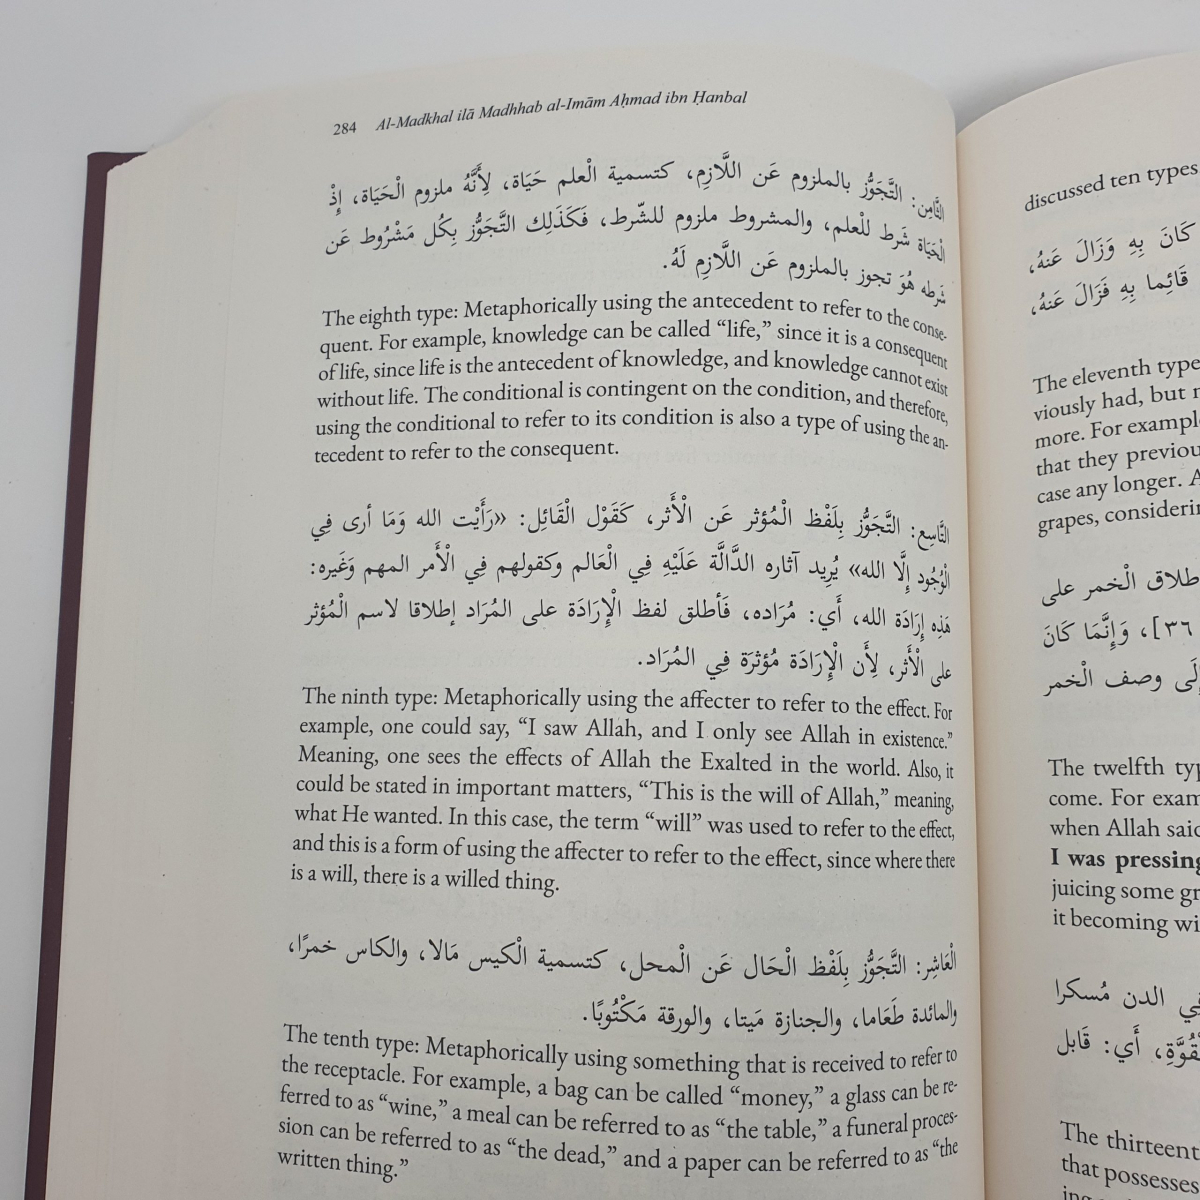 284 Al-Madkhal ilā Madhhab al-Imām Aḥmad ibn Ḥanbal
الثَّامِن: التَّجَوُّز بالملزوم عَن اللَّازِم، كتسمية الْعلم حَيَاة، لِأَنَّهُ ملزوم الْحَيَاة، إِذْ
الْحَيَاة شَرط للْعلم، والمشروط ملزوم للشّرط، فَكَذَلِك التَّجَوُّز بِكُل مَشْرُوط عَن
شَرطه هُوَ تجوز بالملزوم عَن اللَّازِم لَهُ.
The eighth type: Metaphorically using the antecedent to refer to the conse-
quent. For example, knowledge can be called “life,” since it is a consequent
of life, since life is the antecedent of knowledge, and knowledge cannot exist
without life. The conditional is contingent on the condition, and therefore,
using the conditional to refer to its condition is also a type of using the an-
tecedent to refer to the consequent.
التَّاسِع: التَّجَوُّز بِلَفْظ الْمُؤثر عَن الْأَثر، كَقَوْل الْقَائِل: «رَأَيْت الله وَمَا أرى فِي
الْوُجُود إِلَّا الله» يُرِيد آثاره الدَّالَّة عَلَيْهِ فِي الْعَالم وكقولهم فِي الْأَمر المهم وَغَيره:
هَذِه إِرَادَة الله، أَي: مُرَاده، فَأطلق لفظ الْإِرَادَة على المُرَاد إطلاقا لاسم الْمُؤثر
على الْأَثر، لِأَن الْإِرَادَة مُؤثرَة فِي المُرَاد.
The ninth type: Metaphorically using the affecter to refer to the effect. For
example, one could say, “I saw Allah, and I only see Allah in existence.”
Meaning, one sees the effects of Allah the Exalted in the world. Also, it
could be stated in important matters, “This is the will of Allah,” meaning,
what He wanted. In this case, the term “will” was used to refer to the effect,
and this is a form of using the affecter to refer to the effect, since where there
is a will, there is a willed thing.
الْعَاشِر: التَّجَوُّز بِلَفْظ الْحَال عَن الْمحل، كتسمية الْكيس مَالا، والكاس خمرًا،
والمائدة طَعَاما، والجنازة مَيتا، والورقة مَكْتُوبًا.
The tenth type: Metaphorically using something that is received to refer to
the receptacle. For example, a bag can be called “money,” a glass can be re-
ferred to as “wine,” a meal can be referred to as “the table,” a funeral proces-
sion can be referred to as “the dead,” and a paper can be referred to as “the
written thing.”
discussed ten types
كَانَ بِهِ وَزَالَ عَنهُ،
قَائِما بِهِ فَزَالَ عَنهُ،
The eleventh type
viously had, but
more. For exampl
that they previou
case any longer.
grapes, considerin
طلاق الْخمر على
٣٦]، وَإِنَّمَا كَانَ
إِلَى وصف الْخمر
The twelfth typ
come. For exam
when Allah said
I was pressing
juicing some gr
it becoming wi
فِي الدن مُسكرا
قُوَّة، أَي: قَابل
The thirteent
that possesses